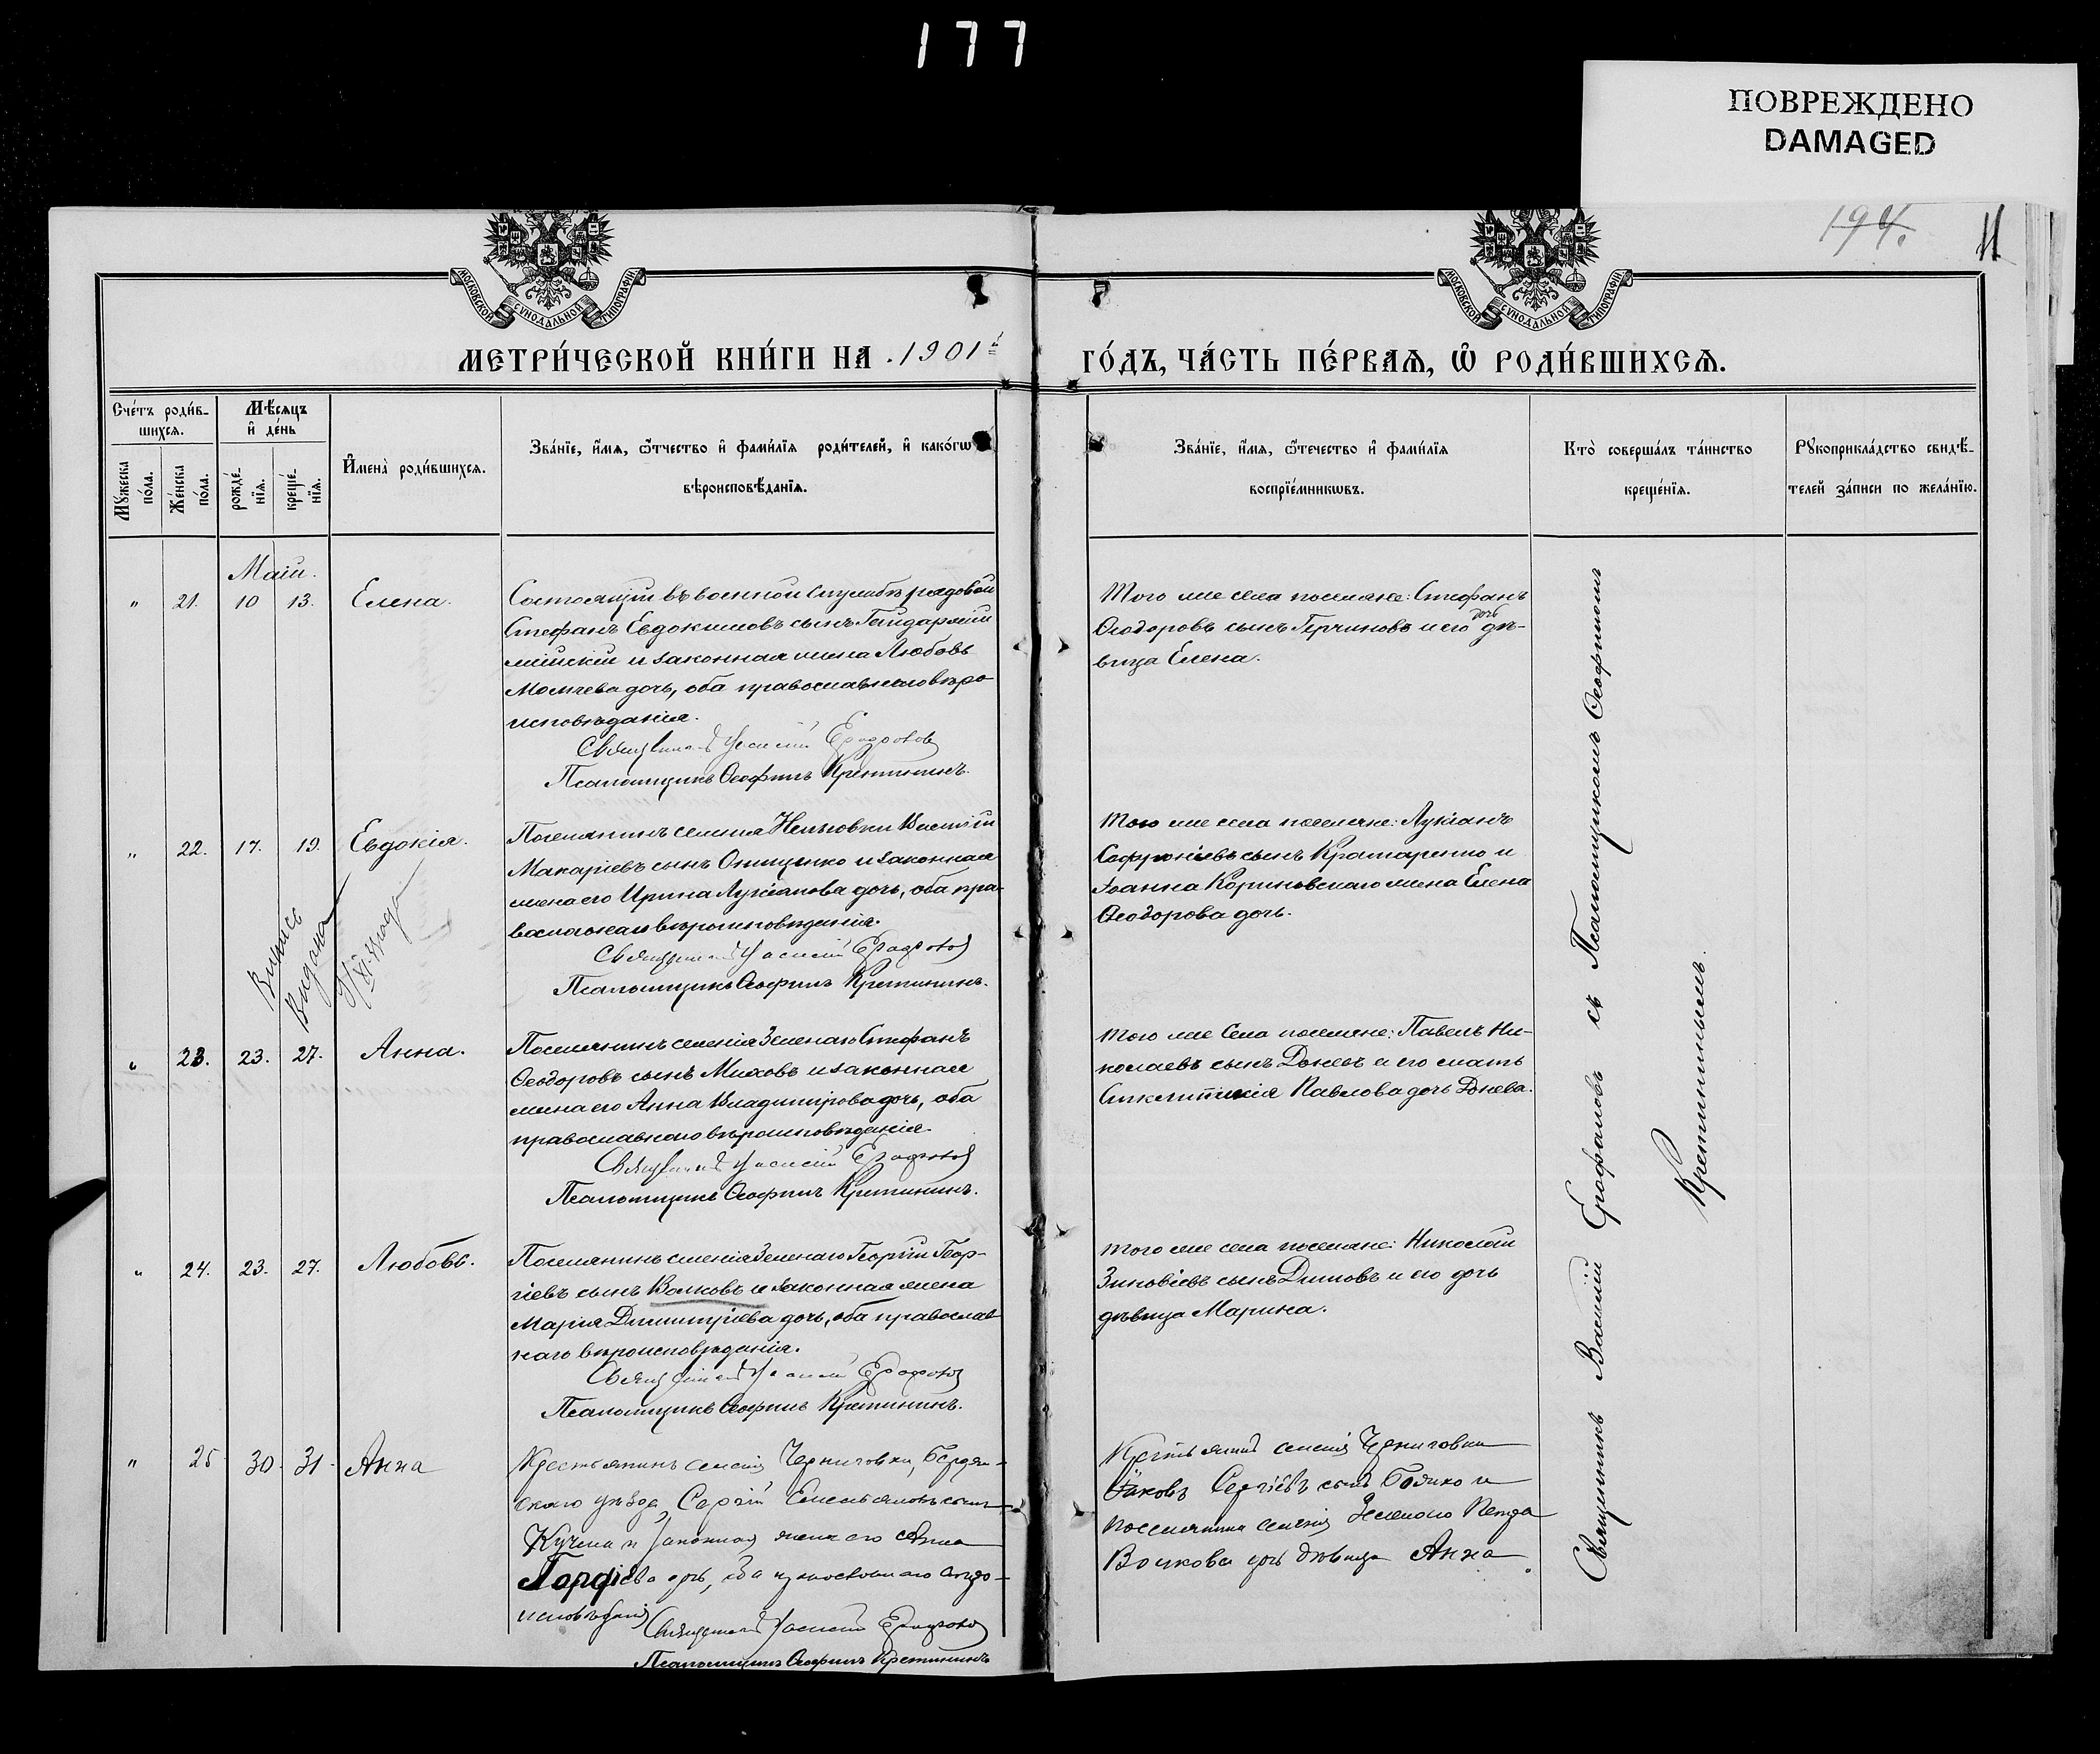 177
ПОВРЕЖДЕНО
DAMAGED
194.
11
МОСКОВСКОЙ СѴНОДАЛЬНОЙ ТИПОГРАФІИ
МОСКОВСКОЙ СѴНОДАЛЬНОЙ ТИПОГРАФІИ
МЕТРИ́ЧЕСКОЙ КНИ́ГИ НА 1901й
ГО́ДЪ, ЧА́СТЬ ПЕ́РВАѦ, Ѽ РОДИ́ВШИХСѦ.
Сче́тъ роди́в-
шихсѧ.
Мѣ́сѧцъ
и҆ де́нь
Мꙋ́жеска
по́ла.
Же́нска
по́ла.
рожде́-
нїѧ.
креще́-
нїѧ.
И҆мена̀ роди́вшихсѧ.
Зва́нїе, и҆́мѧ, ѻ҆́тчество и҆ фами́лїѧ роди́телей, и҆ како́гѡ
вѣроисповѣ́данїѧ.
Зва́нїе, и҆́мѧ, ѻ҆те́чество и҆ фами́лїѧ
воспрїе́мникѡвъ.
Кто̀ соверша́лъ та́инство
креще́нїѧ.
Рꙋкоприкла́дство свидѣ́-
телей за́писи по жела́нїю.
Маій.
" 21. 10 13. Елена.
Состоящій въ военной службѣ рядовой
Стефанъ Евдокимовъ сынъ Гайдаржій
и законная жена Любовь
Момчева дочь, оба православнаго вѣро-
исповѣданія.
Священникъ Василій Ерофаловъ
Псаломщикъ Ѳеофилъ Кретининъ.
Того же села поселяне: Стефанъ
Ѳеодоровъ сынъ Герчиновъ и его дочь дѣ-
вица Елена.
" 22. 17. 19. Евдокія.
Поселянинъ селенія Василій
Макаріевъ сынъ Онищенко и законная
жена его Ирина Лукіанова дочь, оба пра-
вославнаго вѣроисповѣданія.
Священникъ Василій Ерофаловъ
Псаломщикъ Ѳеофилъ Кретининъ.
Того же села поселяне: Лукіанъ
Софроніевъ сынъ Крамаренко и
Іоанна Кориновскаго жена Елена
Ѳеодорова дочь.
Выпись
Выдана
" 23. 23. 27. Анна.
Поселянинъ селенія Зеленаго Стефанъ
Ѳеодоровъ сынъ Миховъ и законная
жена его Анна Владимірова дочь, оба
православнаго вѣроисповѣданія.
Священникъ Василій Ерофаловъ
Псаломщикъ Ѳеофилъ Кретининъ.
Того же села поселяне: Павелъ Ни-
колаевъ сынъ Доневъ и его мать
Синклитикія Павлова дочь Донева.
" 24. 23. 27. Любовь.
Поселянинъ селенія Зеленаго Георгій Геор-
гіевъ сынъ Волковъ и законная жена
Марія Димитріева дочь, оба православ-
наго вѣроисповѣданія.
Священникъ Василій Ерофаловъ
Псаломщикъ Ѳеофилъ Кретининъ.
Того же села поселяне: Николай
Зиновіевъ сынъ Димовъ и его дочь
дѣвица Марина.
" 25 30. 31. Анна
Крестьянинъ селенія Черниговки, Бердян-
скаго уѣзда, Сергій Емельяновъ сынъ
Кучма и законная жена его Анна
Гордіева дочь, оба православнаго вѣро-
исповѣданія
Священникъ Василій Ерофаловъ
Псаломщикъ Ѳеофилъ Кретининъ
Крестьянинъ селенія Черниговки
Іаковъ Сергіевъ сынъ Бойко и
поселянина селенія Зеленаго
Волкова дочь дѣвица Анна.
Священникъ Василій Ерофаловъ съ Псаломщикомъ Ѳеофиломъ
Кретининымъ.